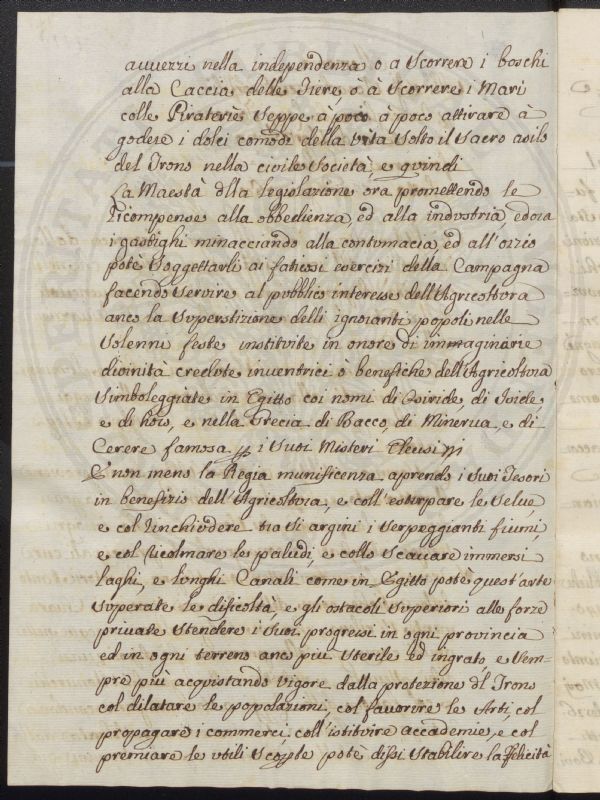 avvezzi nella independenza o a scorrere i boschi
alla Caccia delle Fiere, ò à scorrere i Mari
colle Piraterie seppe à poco à poco attirare à
godere i dolci comodi della vita sotto il sacro asilo
del Trono nella civile società, e quindi
La Maestà dlla legislazione ora promettendo le
ricompense alla obbedienza, ed alla industria, ed ora
i gastighi minacciando alla contumacia, ed all'ozio
potè soggettarli ai faticosi esercizi della Campagna
facendo servire al pubblico interesse dell'Agricoltura
anco la superstizione delli ignoranti popoli nelle
solenni feste instituite in onore di immaginarie
divinità credute inventrici ò benefiche dell'Agricoltura
simboleggiate in Egitto coi nomi di Osiride, di Iside,
e di Horo, e nella Grecia di Bacco, di Minerva, e di
Cerere famosa p i suoi Misteri Eleusinj
E non meno la Regia munificenza aprendo i suoi Tesori
in benefizio dell'Agricoltura, e coll'estirpare le selve,
e col rinchiudere tra si argini i serpeggianti fiumi,
e col ricolmare le paludi, e collo scavare immensi
laghi, e lunghi Canali come in Egitto potè quest'arte
superate le dificoltà, e gli ostacoli superiori alle forze
private stendere i suoi progressi in ogni provincia
ed in ogni terreno anco più sterile ed ingrato, e sem-
pre più acquistando vigore dalla protezione dl Trono
col dilatare le popolazioni, col favorire le Arti, col
propagare i commerci, coll'istituire accademie, e col
premiare le utili scoperte potè dissi stabilire la felicità